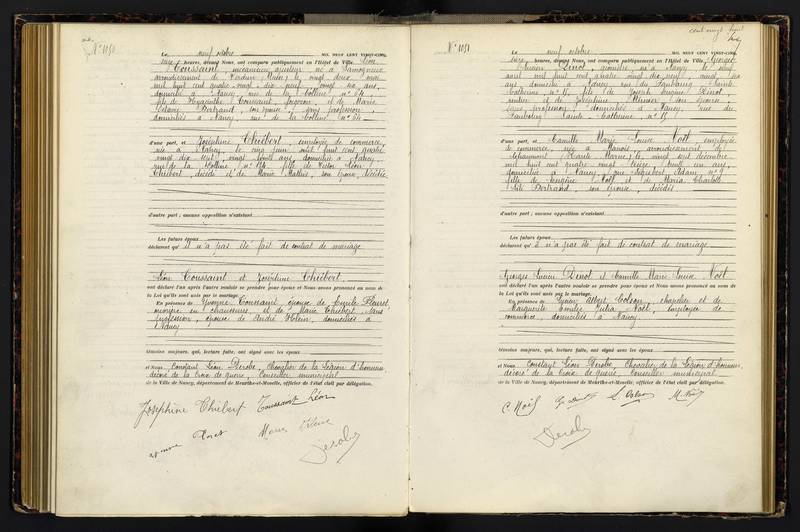 N° 1050
Le neuf octobre MIL NEUF CENT VINGT-CINQ,
heures, devant Nous, ont comparu publiquement en l'Hôtel de Ville, Léon
Toussaint, mécanicien ajusteur, né à Samogneux
arrondissement de Verdun (Meuse) le vingt deux
mil huit cent quatre vingt dix neuf, vingt six ans,
domicilié à Nancy, rue de la Colline n° 64
fils de Hyacinthe Toussaint, et de Marie
Bertrand, son épouse, sans profession
domiciliés à Nancy rue de la Colline n° 64
d'une part, et Joséphine Thiébert, employée de commerce,
née à Nancy, le cinq juin mil huit cent quatre
vingt dix sept, vingt huit ans, domiciliée à Nancy,
rue de la Colline n° 64, fille de Victor Léon
Thiébert, décédé et de Marie Mathis, son épouse, décédée
d'autre part ; aucune opposition n'existant
Les futurs époux
déclarent qu'il n'a pas été fait de contrat de mariage
Léon Toussaint et Joséphine Thiébert
ont déclaré l'un après l'autre vouloir se prendre pour époux et Nous avons prononcé au nom de
la Loi qu'ils sont unis par le mariage.
En présence de Toussaint épouse de Emile
en chaussures, et de Marie Thiébert, sans
profession, épouse de André domiciliés à
Nancy
témoins majeurs, qui, lecture faite, ont signé avec les époux
et Nous Constant Léon Dérobe, Chevalier de la Légion d'honneur
décoré de la Croix de guerre, Conseiller municipal
de la Ville de Nancy, département de Meurthe-et-Moselle, officier de l'état civil par délégation.
Joséphine Thiébert Toussaint Léon
Dérobe
cent vingt
N° 1051
Le neuf octobre MIL NEUF CENT VINGT-CINQ,
heures, devant Nous, ont comparu publiquement en l'Hôtel de Ville, Georges
Lucien Pinot, géomètre, né à Nancy le vingt
avril mil huit cent quatre vingt dix neuf, vingt six
ans domicilié à Nancy rue du Faubourg Sainte
Catherine n° 15, fils de Joseph Eugène Pinot,
rentier et de Joséphine son épouse,
sans profession, domiciliés à Nancy, rue du
Faubourg Sainte Catherine, n° 15
d'une part, et Camille Marie Louise Noël, employée
de commerce, née à Manois, arrondissement de
Chaumont (Haute Marne), le vingt sept décembre
mil huit cent quatre vingt treize, trente un ans,
domiciliée à Nancy, rue Sigisbert Adam, n° 9
fille de Eugène Noël et de Maria
Bertrand, son épouse, décédés
d'autre part ; aucune opposition n'existant
Les futurs époux
déclarent qu'il n'a pas été fait de contrat de mariage
Georges Lucien Pinot et Camille Marie Louise Noël
ont déclaré l'un après l'autre vouloir se prendre pour époux et Nous avons prononcé au nom de
la Loi qu'ils sont unis par le mariage.
En présence de Albert chapelier et de
Marguerite Emilie Julia Noël, employée de
commerce, domiciliés à Nancy
témoins majeurs, qui, lecture faite, ont signé avec les époux
et Nous Constant Léon Dérobe, Chevalier de la Légion d'honneur,
décoré de la Croix de guerre, Conseiller municipal
de la Ville de Nancy, département de Meurthe-et-Moselle, officier de l'état civil par délégation.
C. Noël M. Noël
Dérobe